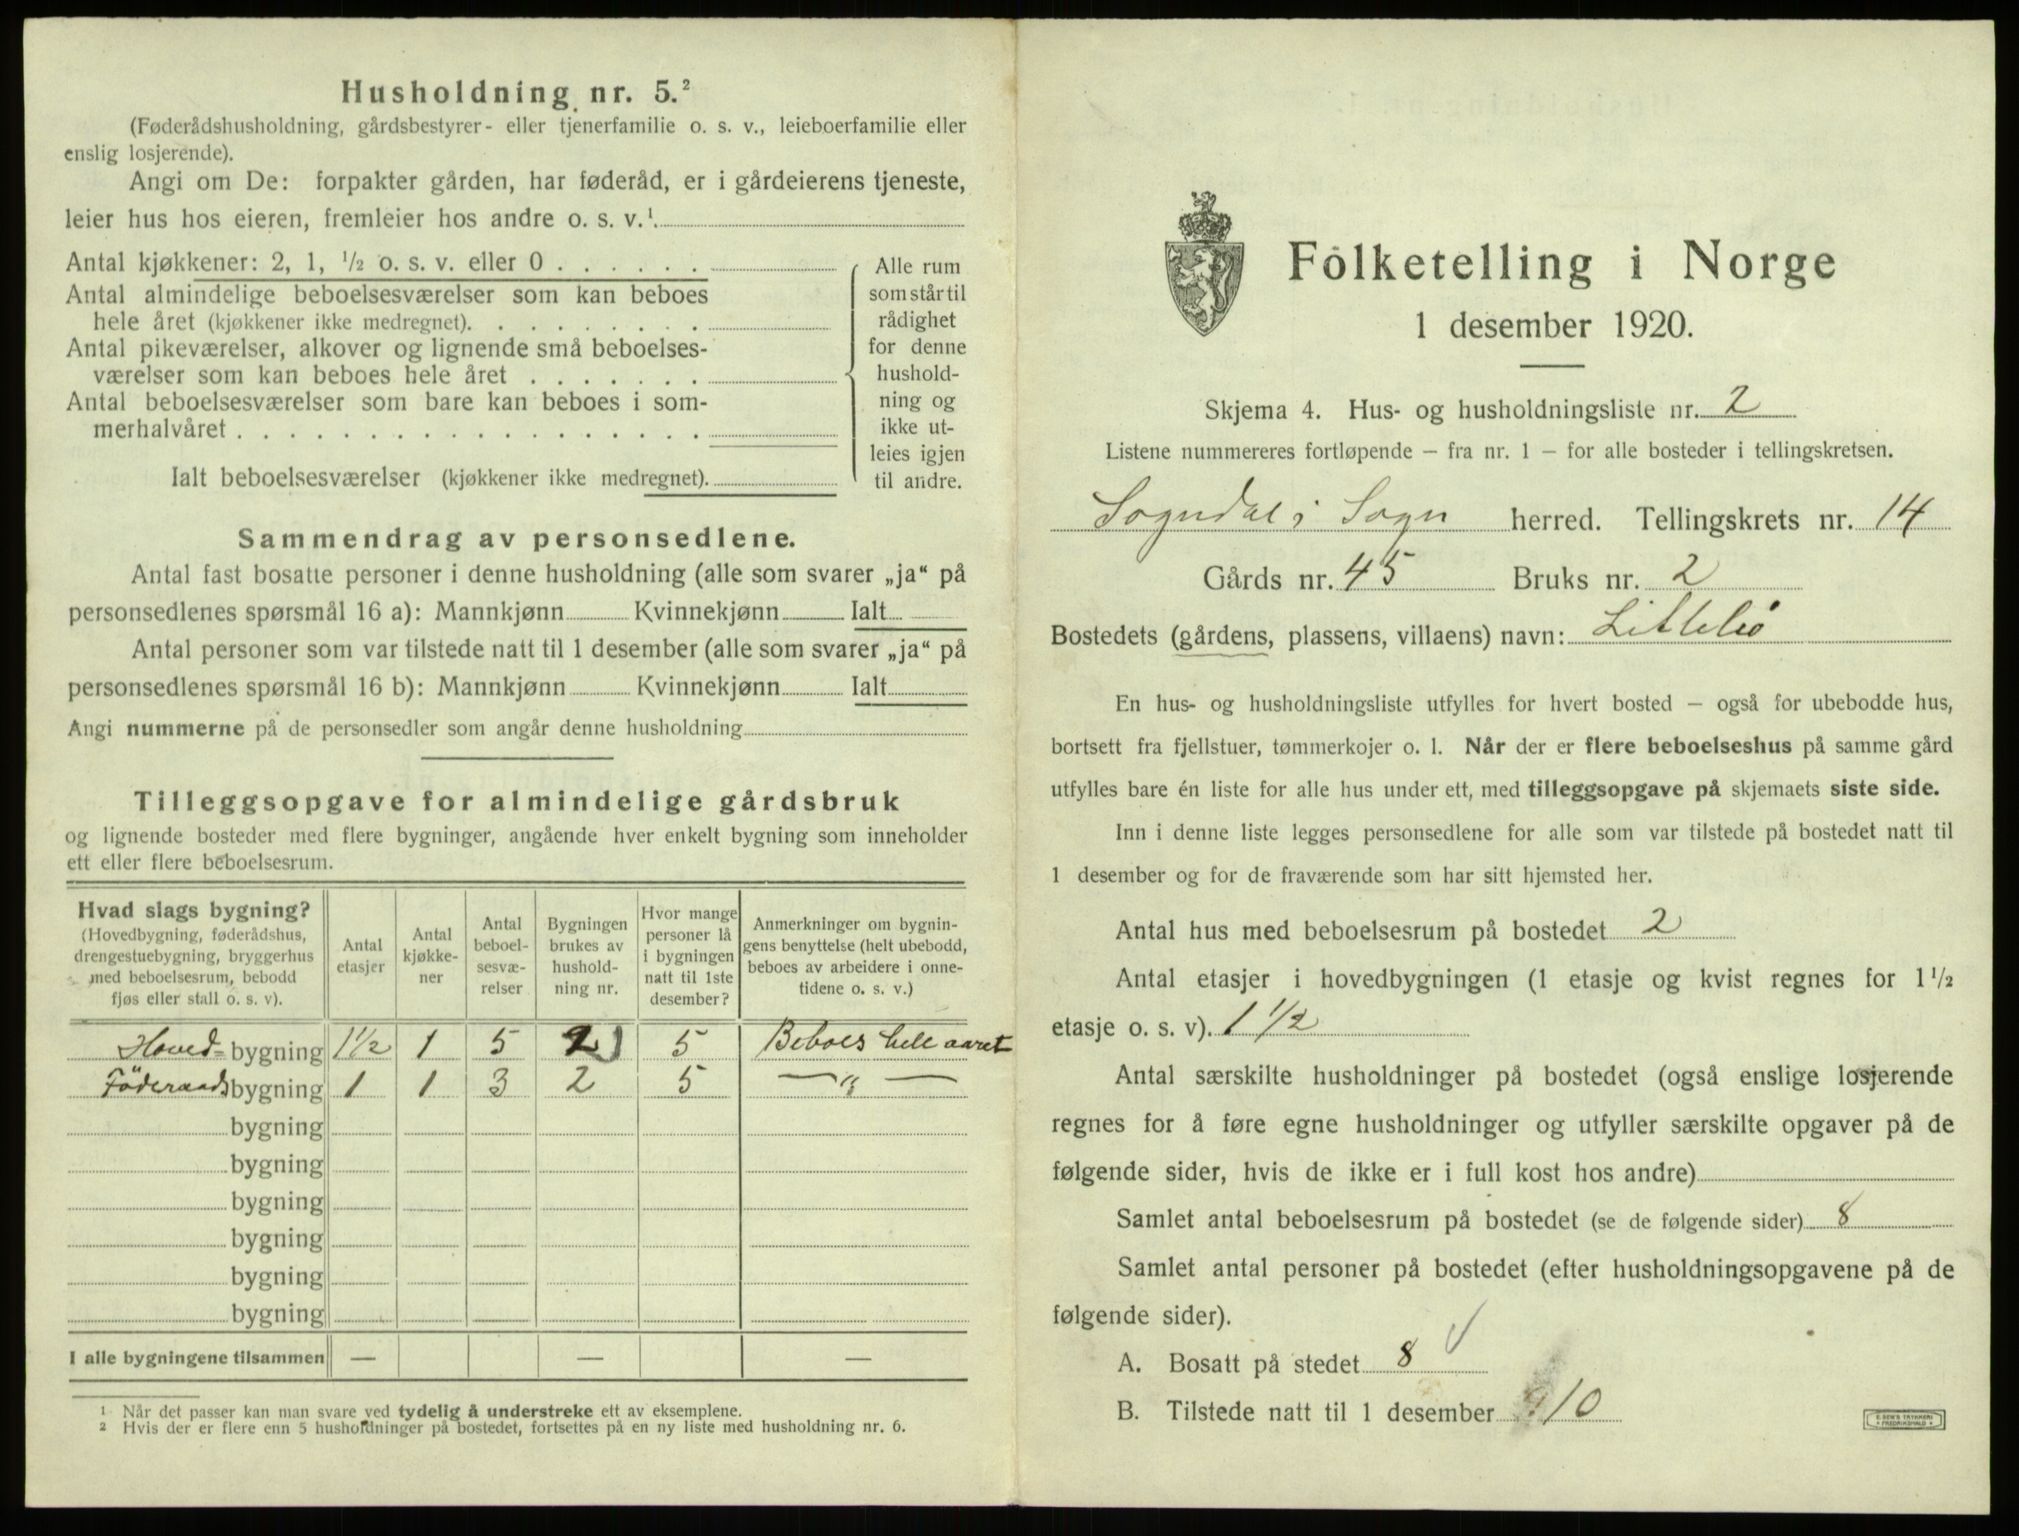 Husholdning nr. 5.²
(Føderådshusholdning, gårdsbestyrer- eller tjenerfamilie o. s. v., leieboerfamilie eller
enslig losjerende).
Angi om De: forpakter gården, har føderåd, er i gårdeierens tjeneste,
leier hus hos eieren, fremleier hos andre o. s. v.¹
Antal kjøkkener: 2, 1, ½ o. s. v. eller 0 . . . . . .
Antal almindelige beboelsesværelser som kan beboes
hele året (kjøkkener ikke medregnet). . . . . . . . .
Antal pikeværelser, alkover og lignende små beboelses-
værelser som kan beboes hele året . . . . . . .
Antal beboelsesværelser som bare kan beboes i som-
merhalvåret . . . . . . . . . . . . . . . . . .
Ialt beboelsesværelser (kjøkkener ikke medregnet).
Alle rum
som står til
rådighet
for denne
hushold-
ning og
ikke ut-
leies igjen
til andre.
Sammendrag av personsedlene.
Antal fast bosatte personer i denne husholdning (alle som svarer „ja“ på
personsedlenes spørsmål 16 a): Mannkjønn Kvinnekjønn Ialt
Antal personer som var tilstede natt til 1 desember (alle som svarer „ja“ på
personsedlenes spørsmål 16 b): Mannkjønn Kvinnekjønn Ialt
Angi nummerne på de personsedler som angår denne husholdning
Tilleggsopgave for almindelige gårdsbruk
og lignende bosteder med flere bygninger, angående hver enkelt bygning som inneholder
ett eller flere beboelsesrum.
Hvad slags bygning?
(Hovedbygning, føderådshus,
drengestuebygning, bryggerhus
med beboelsesrum, bebodd
fjøs eller stall o. s. v).
Antal
etasjer
Antal
kjøkke-
ner
Antal
beboel-
sesvæ-
relser
Bygningen
brukes av
hushold-
ning nr.
Hvor mange
personer lå
i bygningen
natt til 1ste
desember?
Anmerkninger om bygnin-
gens benyttelse (helt ubebodd,
beboes av arbeidere i onne-
tidene o. s. v.)
Hoved- bygning 1½ 1 5 5 Beboes hele aaret
Föderaads bygning 1 1 3 2 5 — „ —
bygning
bygning
bygning
bygning
bygning
bygning
I alle bygningene tilsammen — — —
¹ Når det passer kan man svare ved tydelig å understreke ett av eksemplene.
² Hvis der er flere enn 5 husholdninger på bostedet, fortsettes på en ny liste med husholdning nr. 6.
Folketelling i Norge
1 desember 1920.
Skjema 4. Hus- og husholdningsliste nr. 2
Listene nummereres fortløpende — fra nr. 1 — for alle bosteder i tellingskretsen.
Sogndal i Sogn herred. Tellingskrets nr. 14
Gårds nr. 45 Bruks nr. 2
Bostedets (gårdens, plassens, villaens) navn:
En hus- og husholdningsliste utfylles for hvert bosted — også for ubebodde hus,
bortsett fra fjellstuer, tømmerkojer o. l. Når der er flere beboelseshus på samme gård
utfylles bare én liste for alle hus under ett, med tilleggsopgave på skjemaets siste side.
Inn i denne liste legges personsedlene for alle som var tilstede på bostedet natt til
1 desember og for de fraværende som har sitt hjemsted her.
Antal hus med beboelsesrum på bostedet 2
Antal etasjer i hovedbygningen (1 etasje og kvist regnes for 1½
etasje o. s. v). 1½
Antal særskilte husholdninger på bostedet (også enslige losjerende
regnes for å føre egne husholdninger og utfyller særskilte opgaver på de
følgende sider, hvis de ikke er i full kost hos andre)
Samlet antal beboelsesrum på bostedet (se de følgende sider) 8
Samlet antal personer på bostedet (efter husholdningsopgavene på de
følgende sider).
A. Bosatt på stedet 8
B. Tilstede natt til 1 desember 10